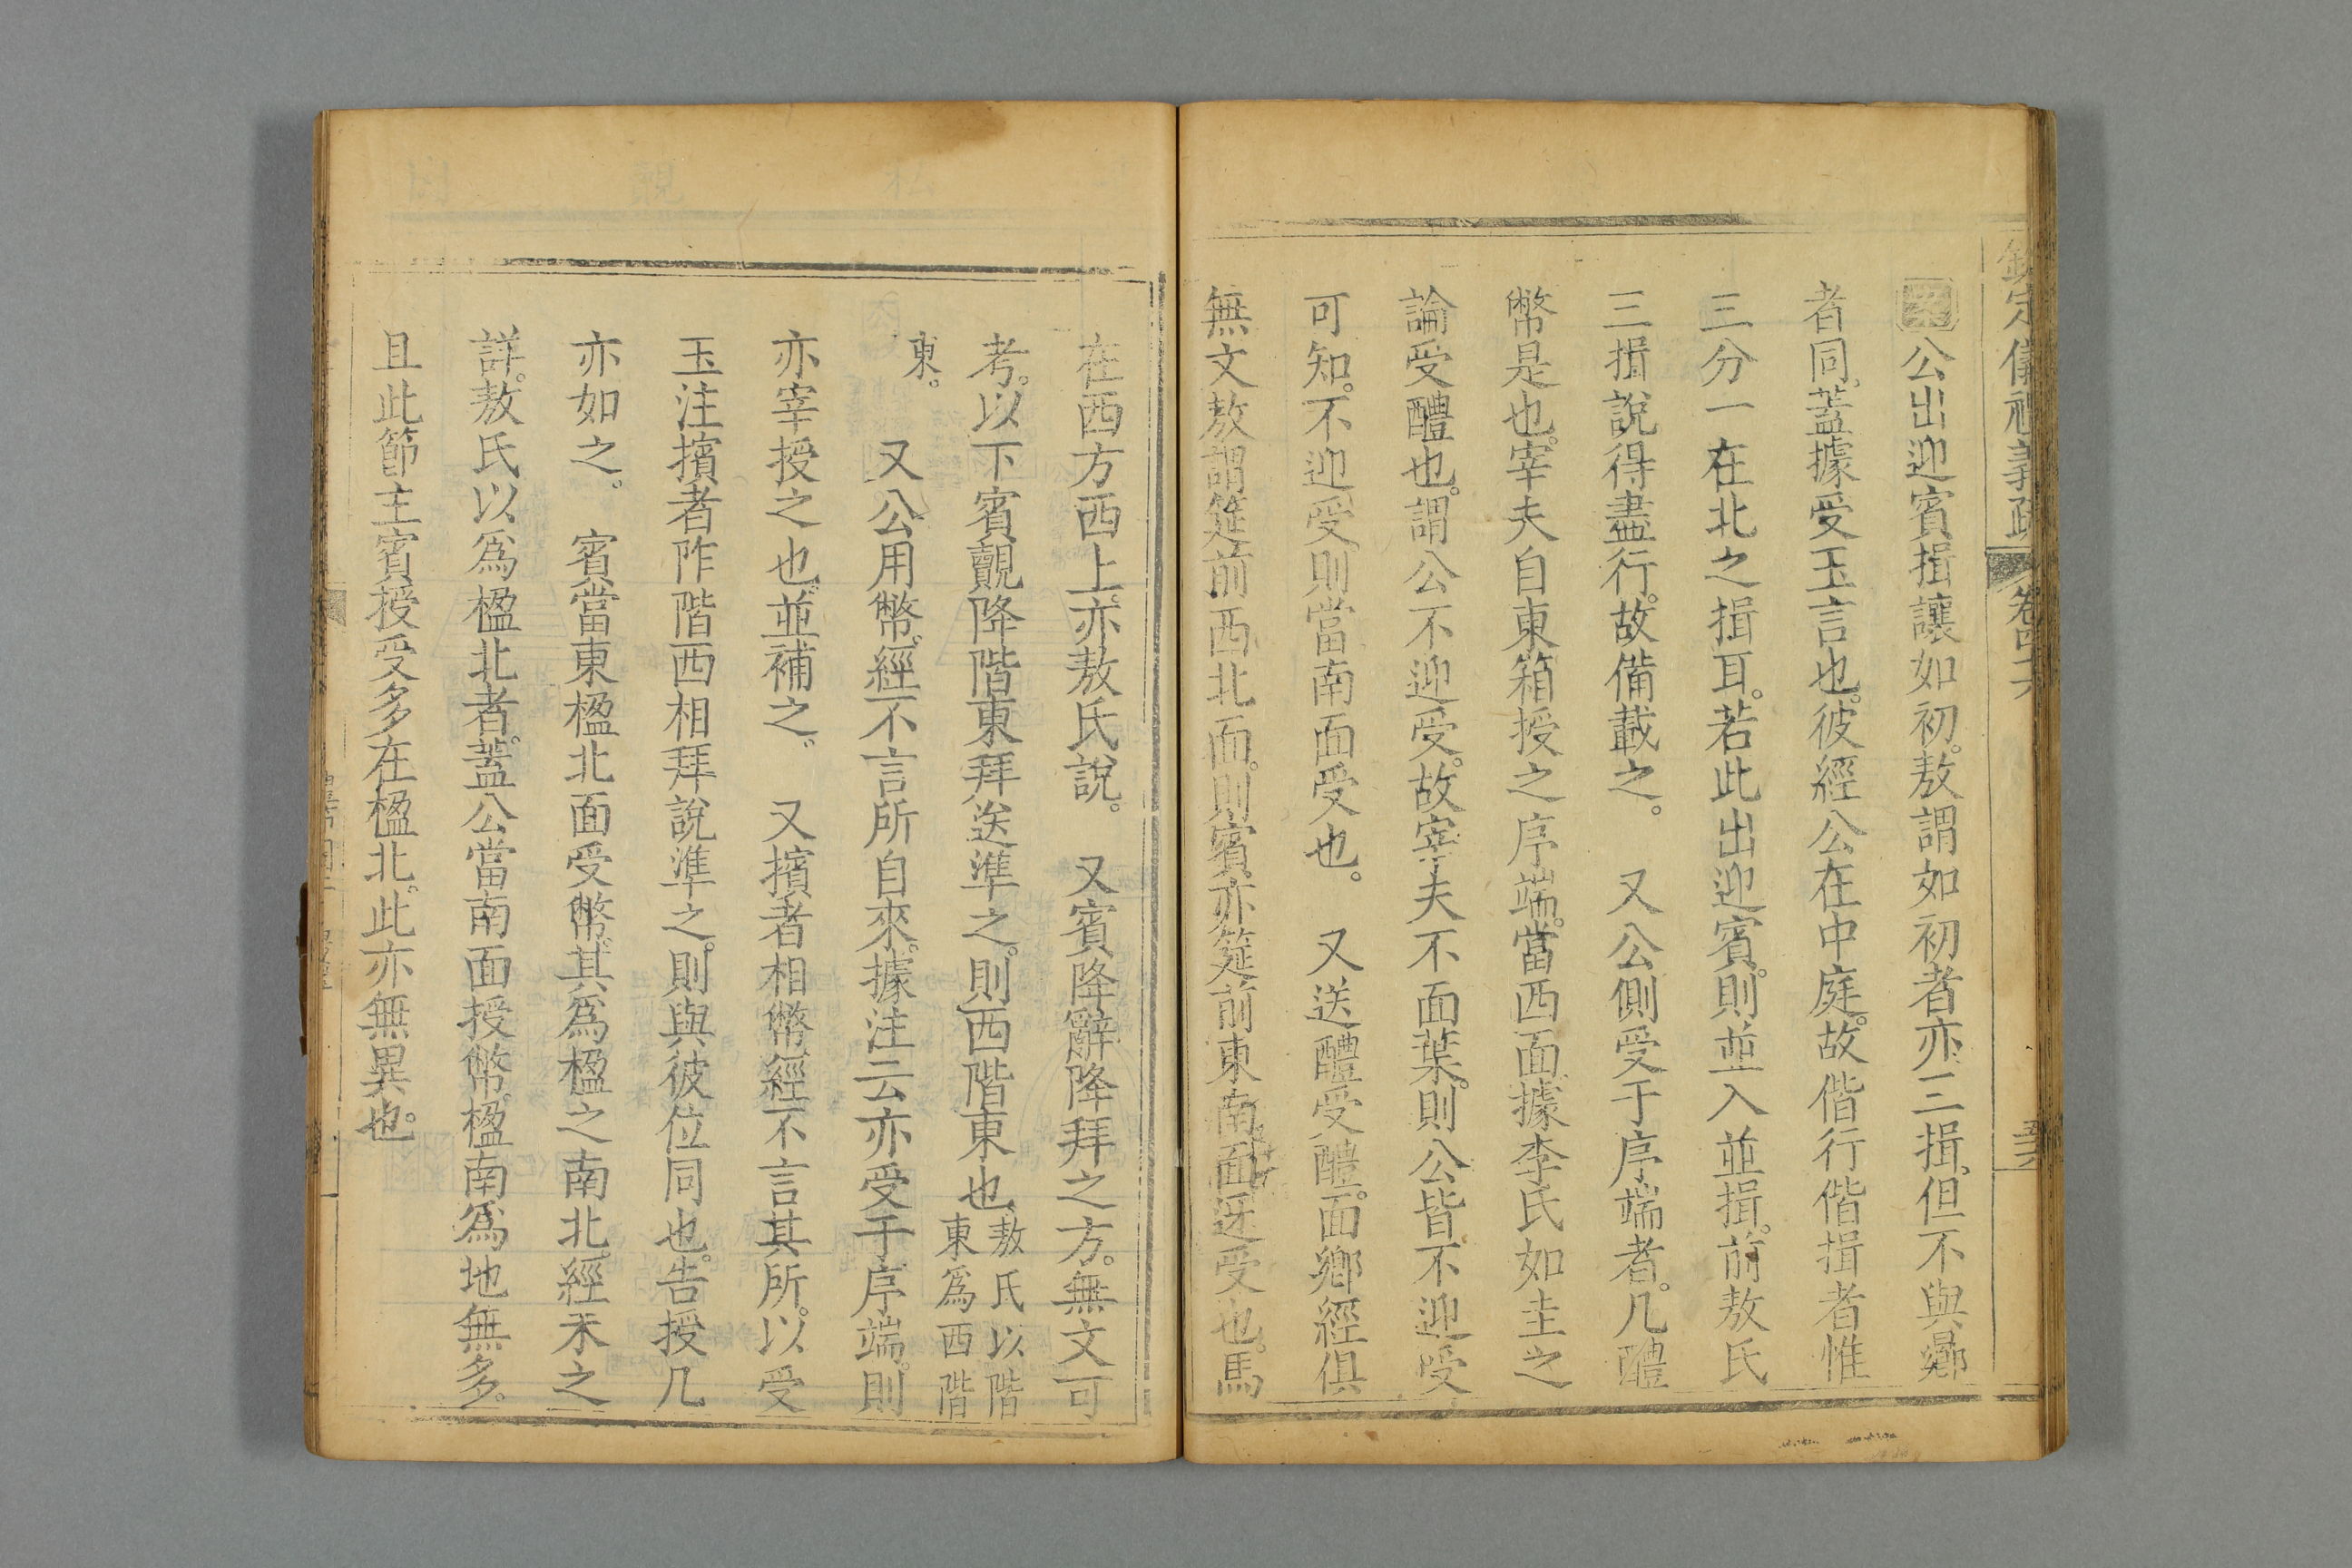 欽定儀禮義疏 卷四十六
案公出迎賓揖讓如初。敖謂如初者亦三揖。但不與鄉
者同。蓋據受玉言也。彼經公在中庭。故偕行偕揖者惟
三分一在北之揖耳。若此出迎賓。則並入並揖。前敖氏
三揖說得盡行。故備載之。 又公側受于序端者。几醴
幣是也。宰夫自東箱授之序端。當西面。據李氏如圭之
論受醴也。謂公不迎受。故宰夫不面葉。則公皆不迎受
可知。不迎受則當南面受也。 又送醴受醴。面鄉經俱
無文。敖謂筵前西北面。則賓亦筵前東南面迓受也。馬
在西方西上。亦敖氏說。 又賓降辭降拜之方。無文可
考。以下賓覿降階東拜送準之。則西階東也。敖氏以階東為西階
東。 又公用幣。經不言所自來。據注云亦受于序端。則
亦宰授之也。並補之。 又擯者相幣。經不言其所。以受
玉注擯者阼階西相拜說準之。則與彼位同也。告授几
亦如之。 賓當東楹北面受幣。其為楹之南北。經未之
詳。敖氏以為楹北者。蓋公當南面授幣。楹南為地無多。
且此節主賓授受多在楹北。此亦無異也。